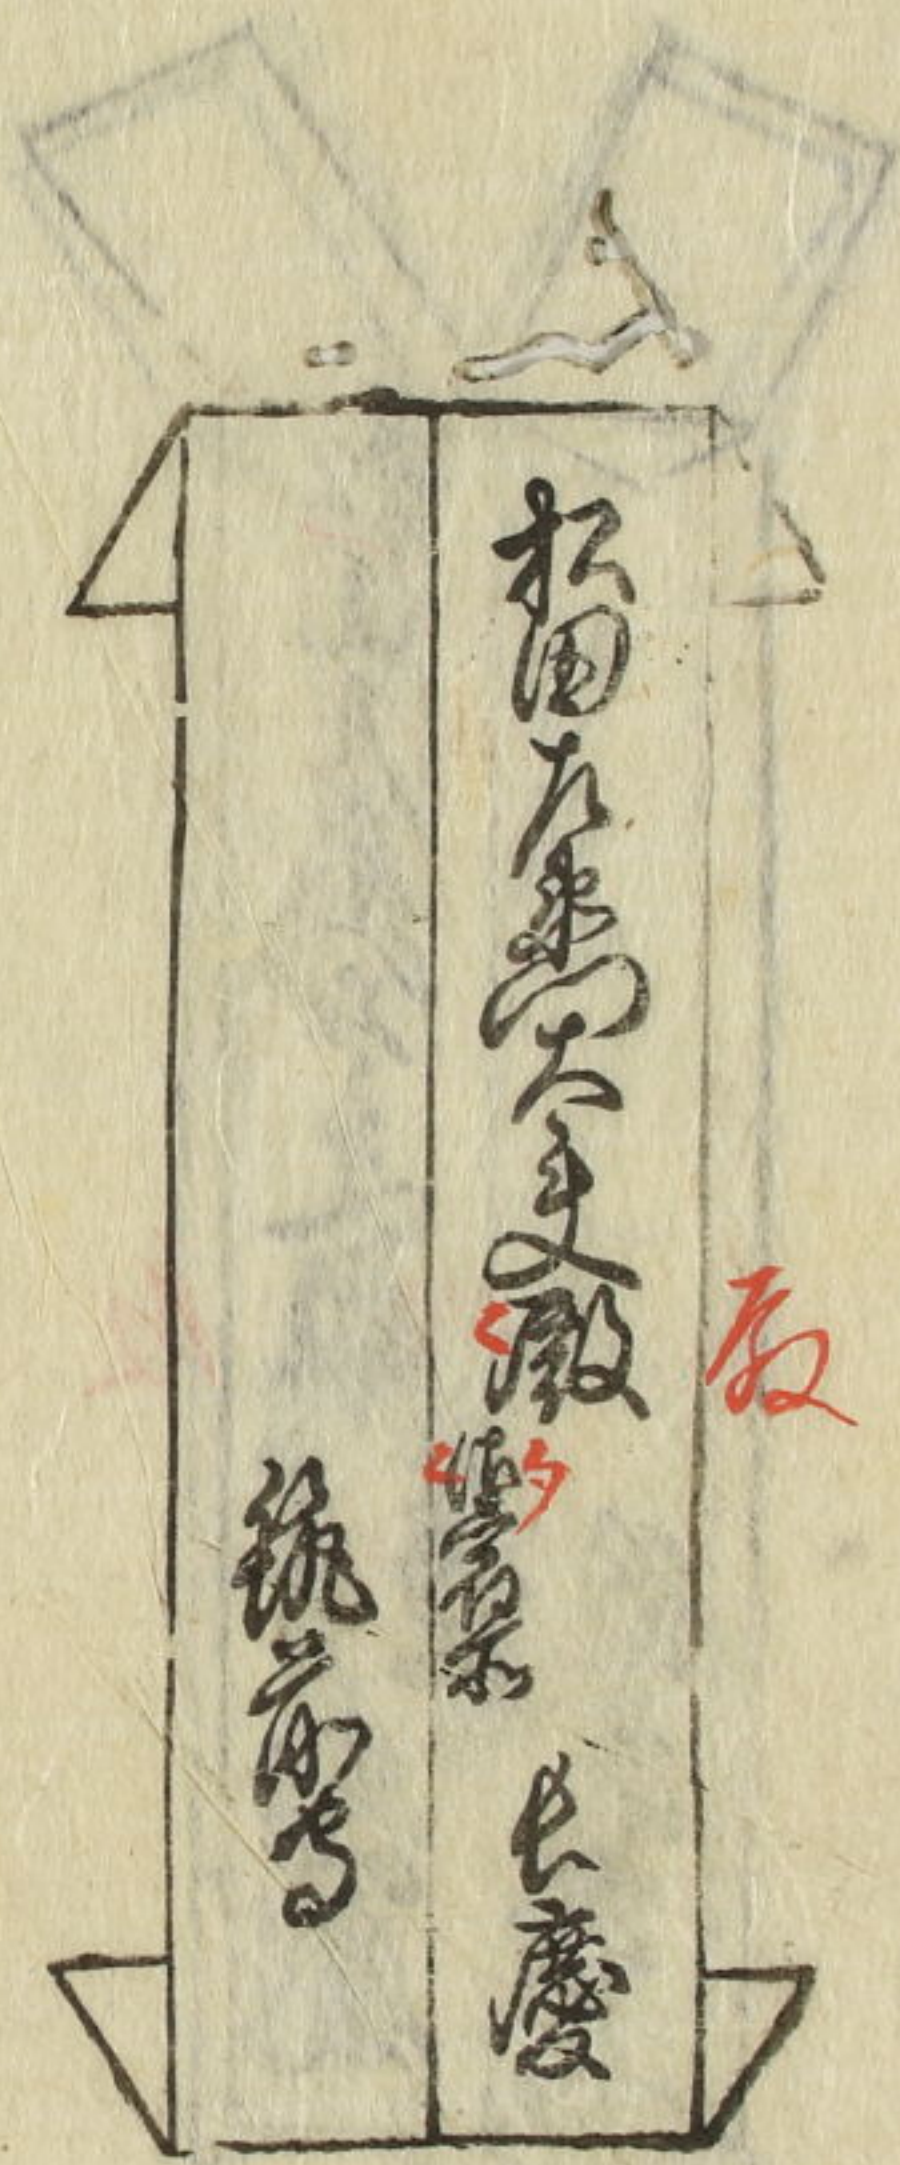 松岡左衛門大夫殿
殿
御宿所
長慶
筑前守